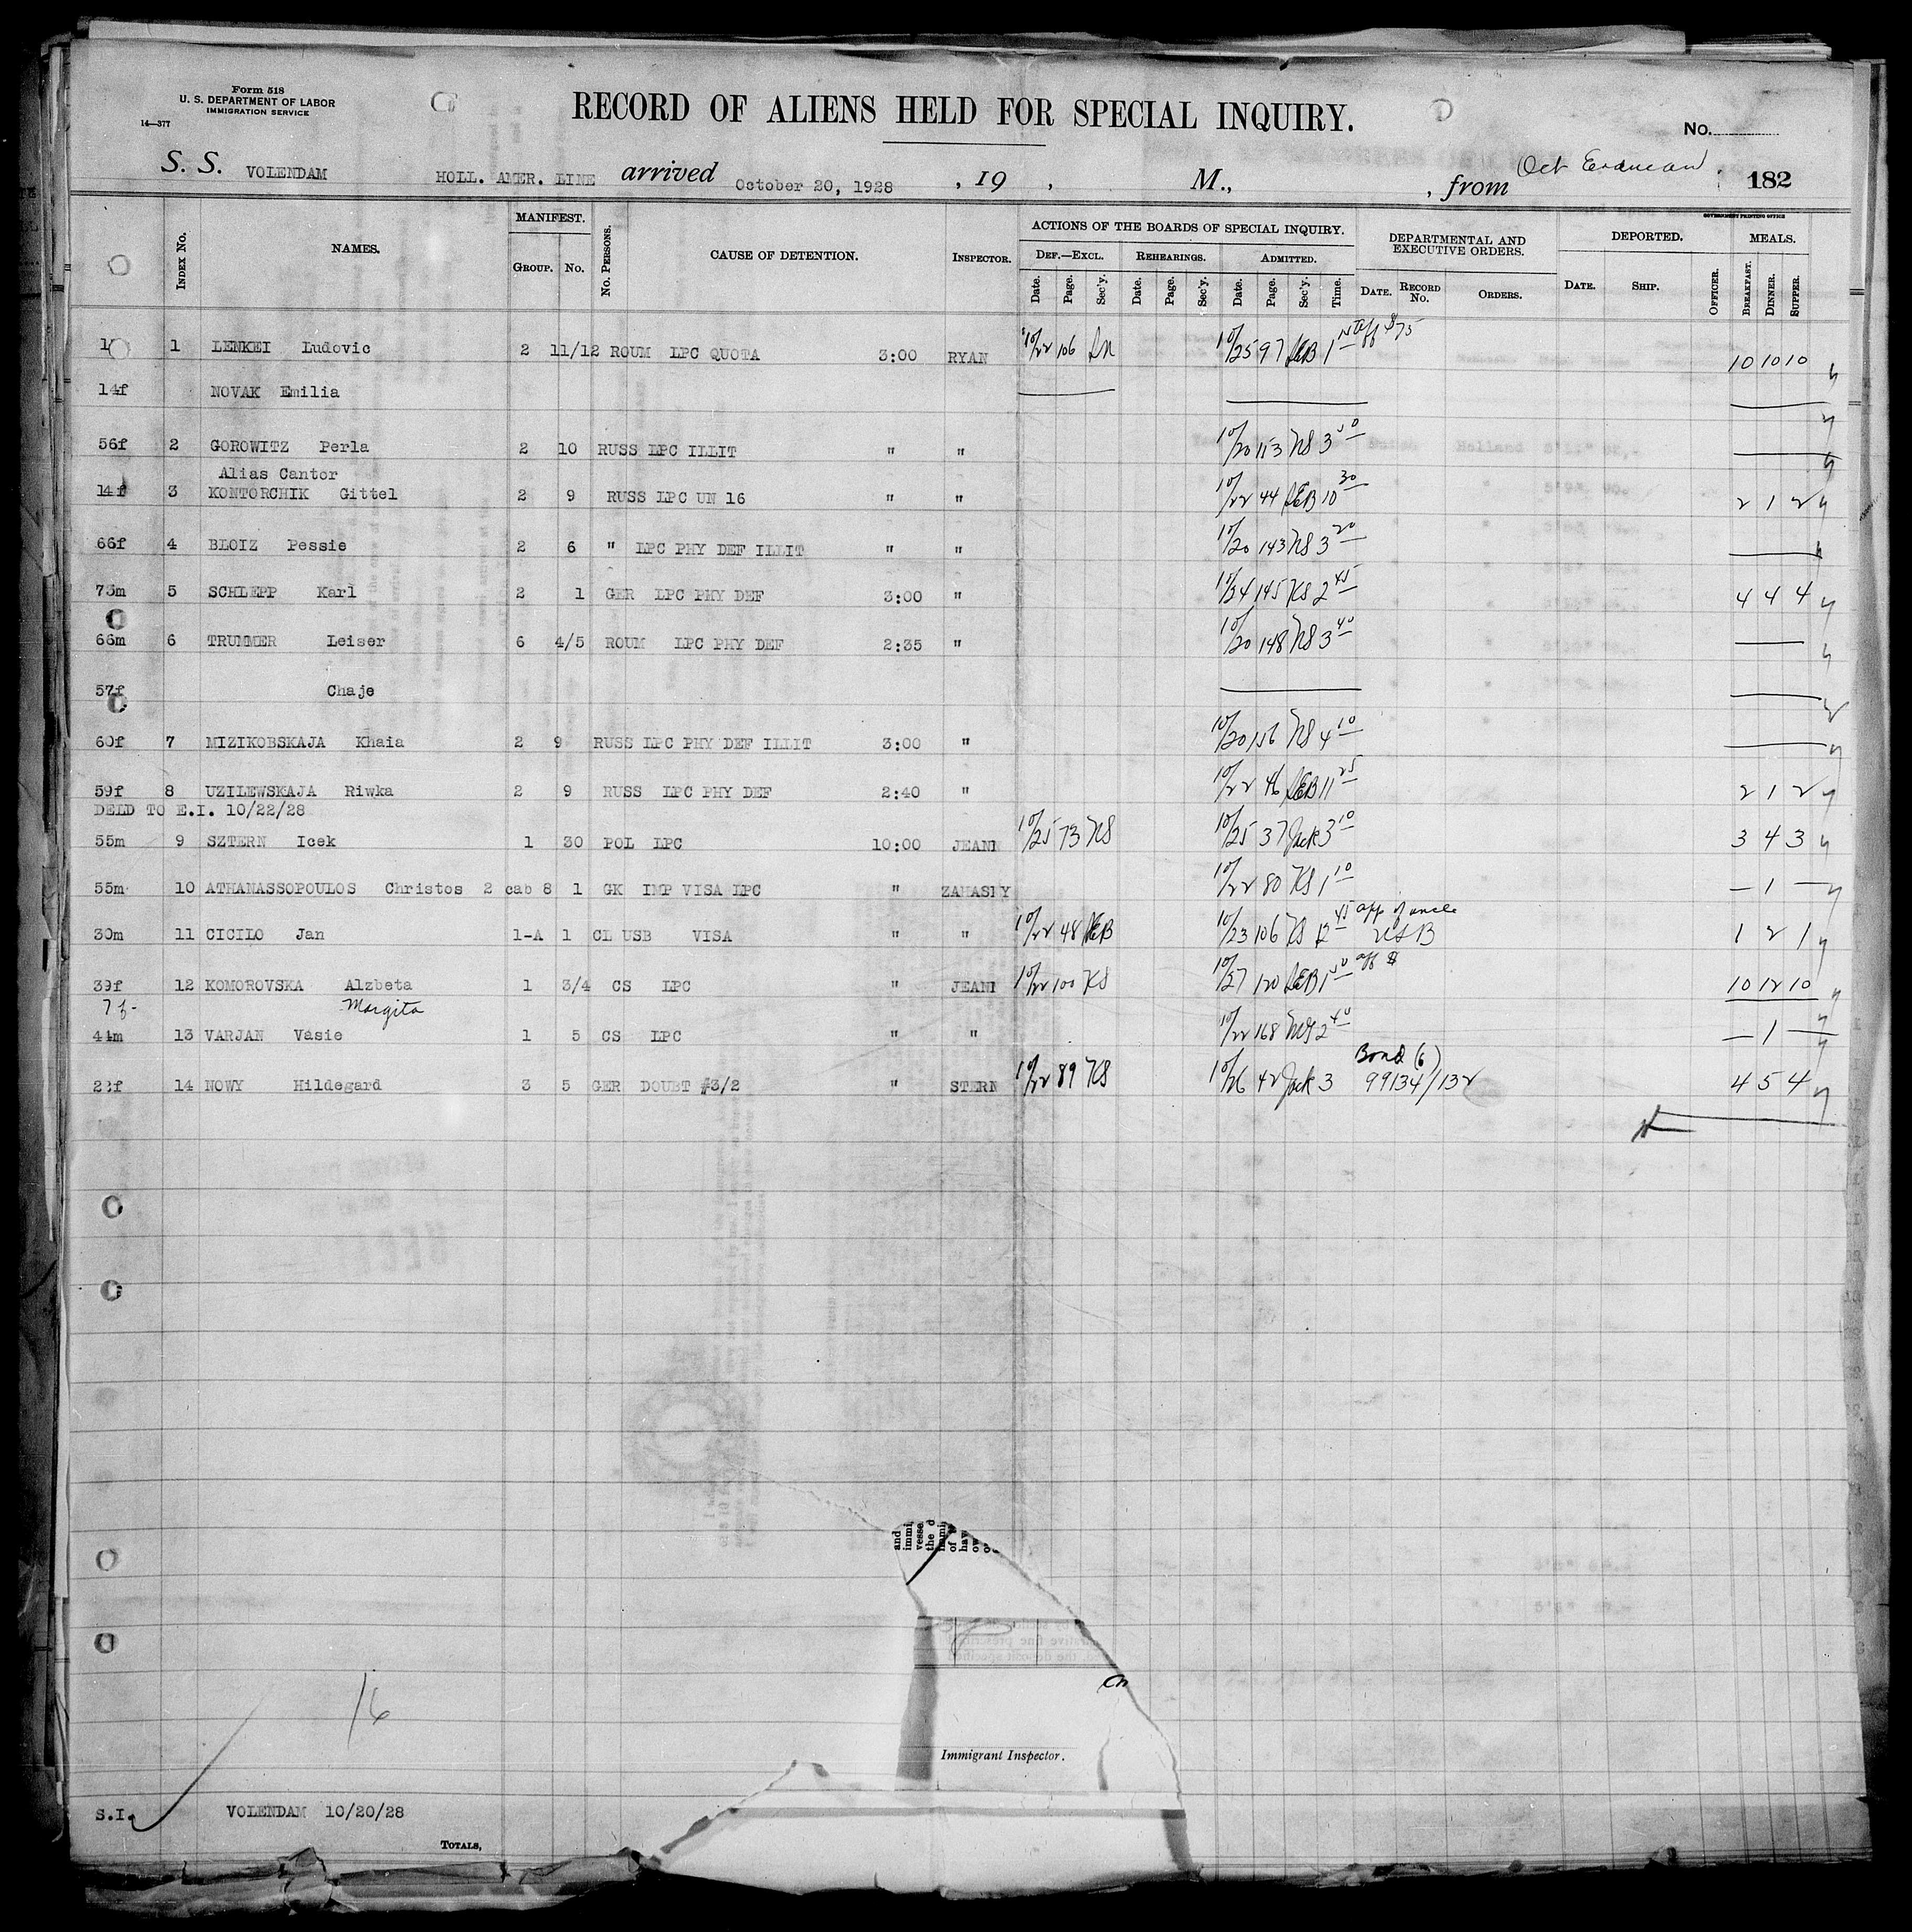 Form 518
U. S. DEPARTMENT OF LABOR
IMMIGRATION SERVICE
14—377
RECORD OF ALIENS HELD FOR SPECIAL INQUIRY.
No.
S. S. VOLENDAM HOLL. AMER. LINE arrived October 20, 1928 , 19 , M., , from Oct 182
GOVERNMENT PRINTING OFFICE
INDEX NO. NAMES. MANIFEST. GROUP. NO. NO. PERSONS. CAUSE OF DETENTION. INSPECTOR. ACTIONS OF THE BOARDS OF SPECIAL INQUIRY. DEPARTMENTAL AND EXECUTIVE ORDERS. DEPORTED. MEALS.
DEF.—EXCL. REHEARINGS. ADMITTED.
Date. Page. Sec'y. Date. Page. Sec'y. Date. Page. Sec'y. Time. DATE. RECORD NO. ORDERS. DATE. SHIP. OFFICER. BREAKFAST. DINNER. SUPPER.
1 LENKEI Ludovic 2 11/12 ROUM LPC QUOTA 3:00 RYAN 10/22 106 10/25 97 LEB 1 $75 10 10 10
14f NOVAK Emilia
56f 2 GOROWITZ Perla 2 10 RUSS LPC ILLIT " " 10/20 113 KS 3
Alias Cantor
14f 3 KONTORCHIK Gittel 2 9 RUSS LPC UN 16 " " 10/22 44 LEB 10 30 2 1 2
66f 4 BLOIZ Pessie 2 6 " LPC PHY DEF ILLIT " " 10/20 143 KS 3 20
73m 5 SCHLEPP Karl 2 1 GER LPC PHY DEF 3:00 " 145 KS 2 45 4 4 4
66m 6 TRUMMER Leiser 6 4/5 ROUM LPC PHY DEF 2:35 " 10/20 148 KS 3 40
57f Chaje
60f 7 MIZIKOBSKAJA Khaia 2 9 RUSS LPC PHY DEF ILLIT 3:00 " 10/20 156 KS 4 10
59f 8 UZILEWSKAJA Riwka 2 9 RUSS LPC PHY DEF 2:40 " 10/22 46 LEB 11 25 2 1 2
DELD TO E.I. 10/22/28
55m 9 SZTERN Icek 1 30 POL LPC 10:00 JEANN 10/25 73 KS 10/25 37 Jack 3 10 3 4 3
55m 10 ATHANASSOPOULOS Christos 2 cab 8 1 GK IMP VISA LPC " ZAMASHY 10/22 80 KS 1 10 — 1 —
30m 11 CICILO Jan 1-A 1 CL USB VISA " " 10/22 48 LEB 10/23 106 KS 12 45 app of uncle USB 1 2 1
39f 12 KOMOROVSKA Alzbeta 1 3/4 CS LPC " JEANN 10/22 100 KS 10/27 120 LEB 1 aff $ 10 12 10
7f- Margita
44m 13 VARJAN Vasie 1 5 CS LPC " " 10/22 168 2 40 — 1 —
Bond (6)
22f 14 NOWY Hildegard 3 5 GER DOUBT #3/2 " STERN 10/22 89 KS 10/26 42 Jack 3 99134/132 4 5 4
and
immi
vesse
the d
of
hav
Immigrant Inspector.
16
S.I. VOLENDAM 10/20/28
TOTALS,